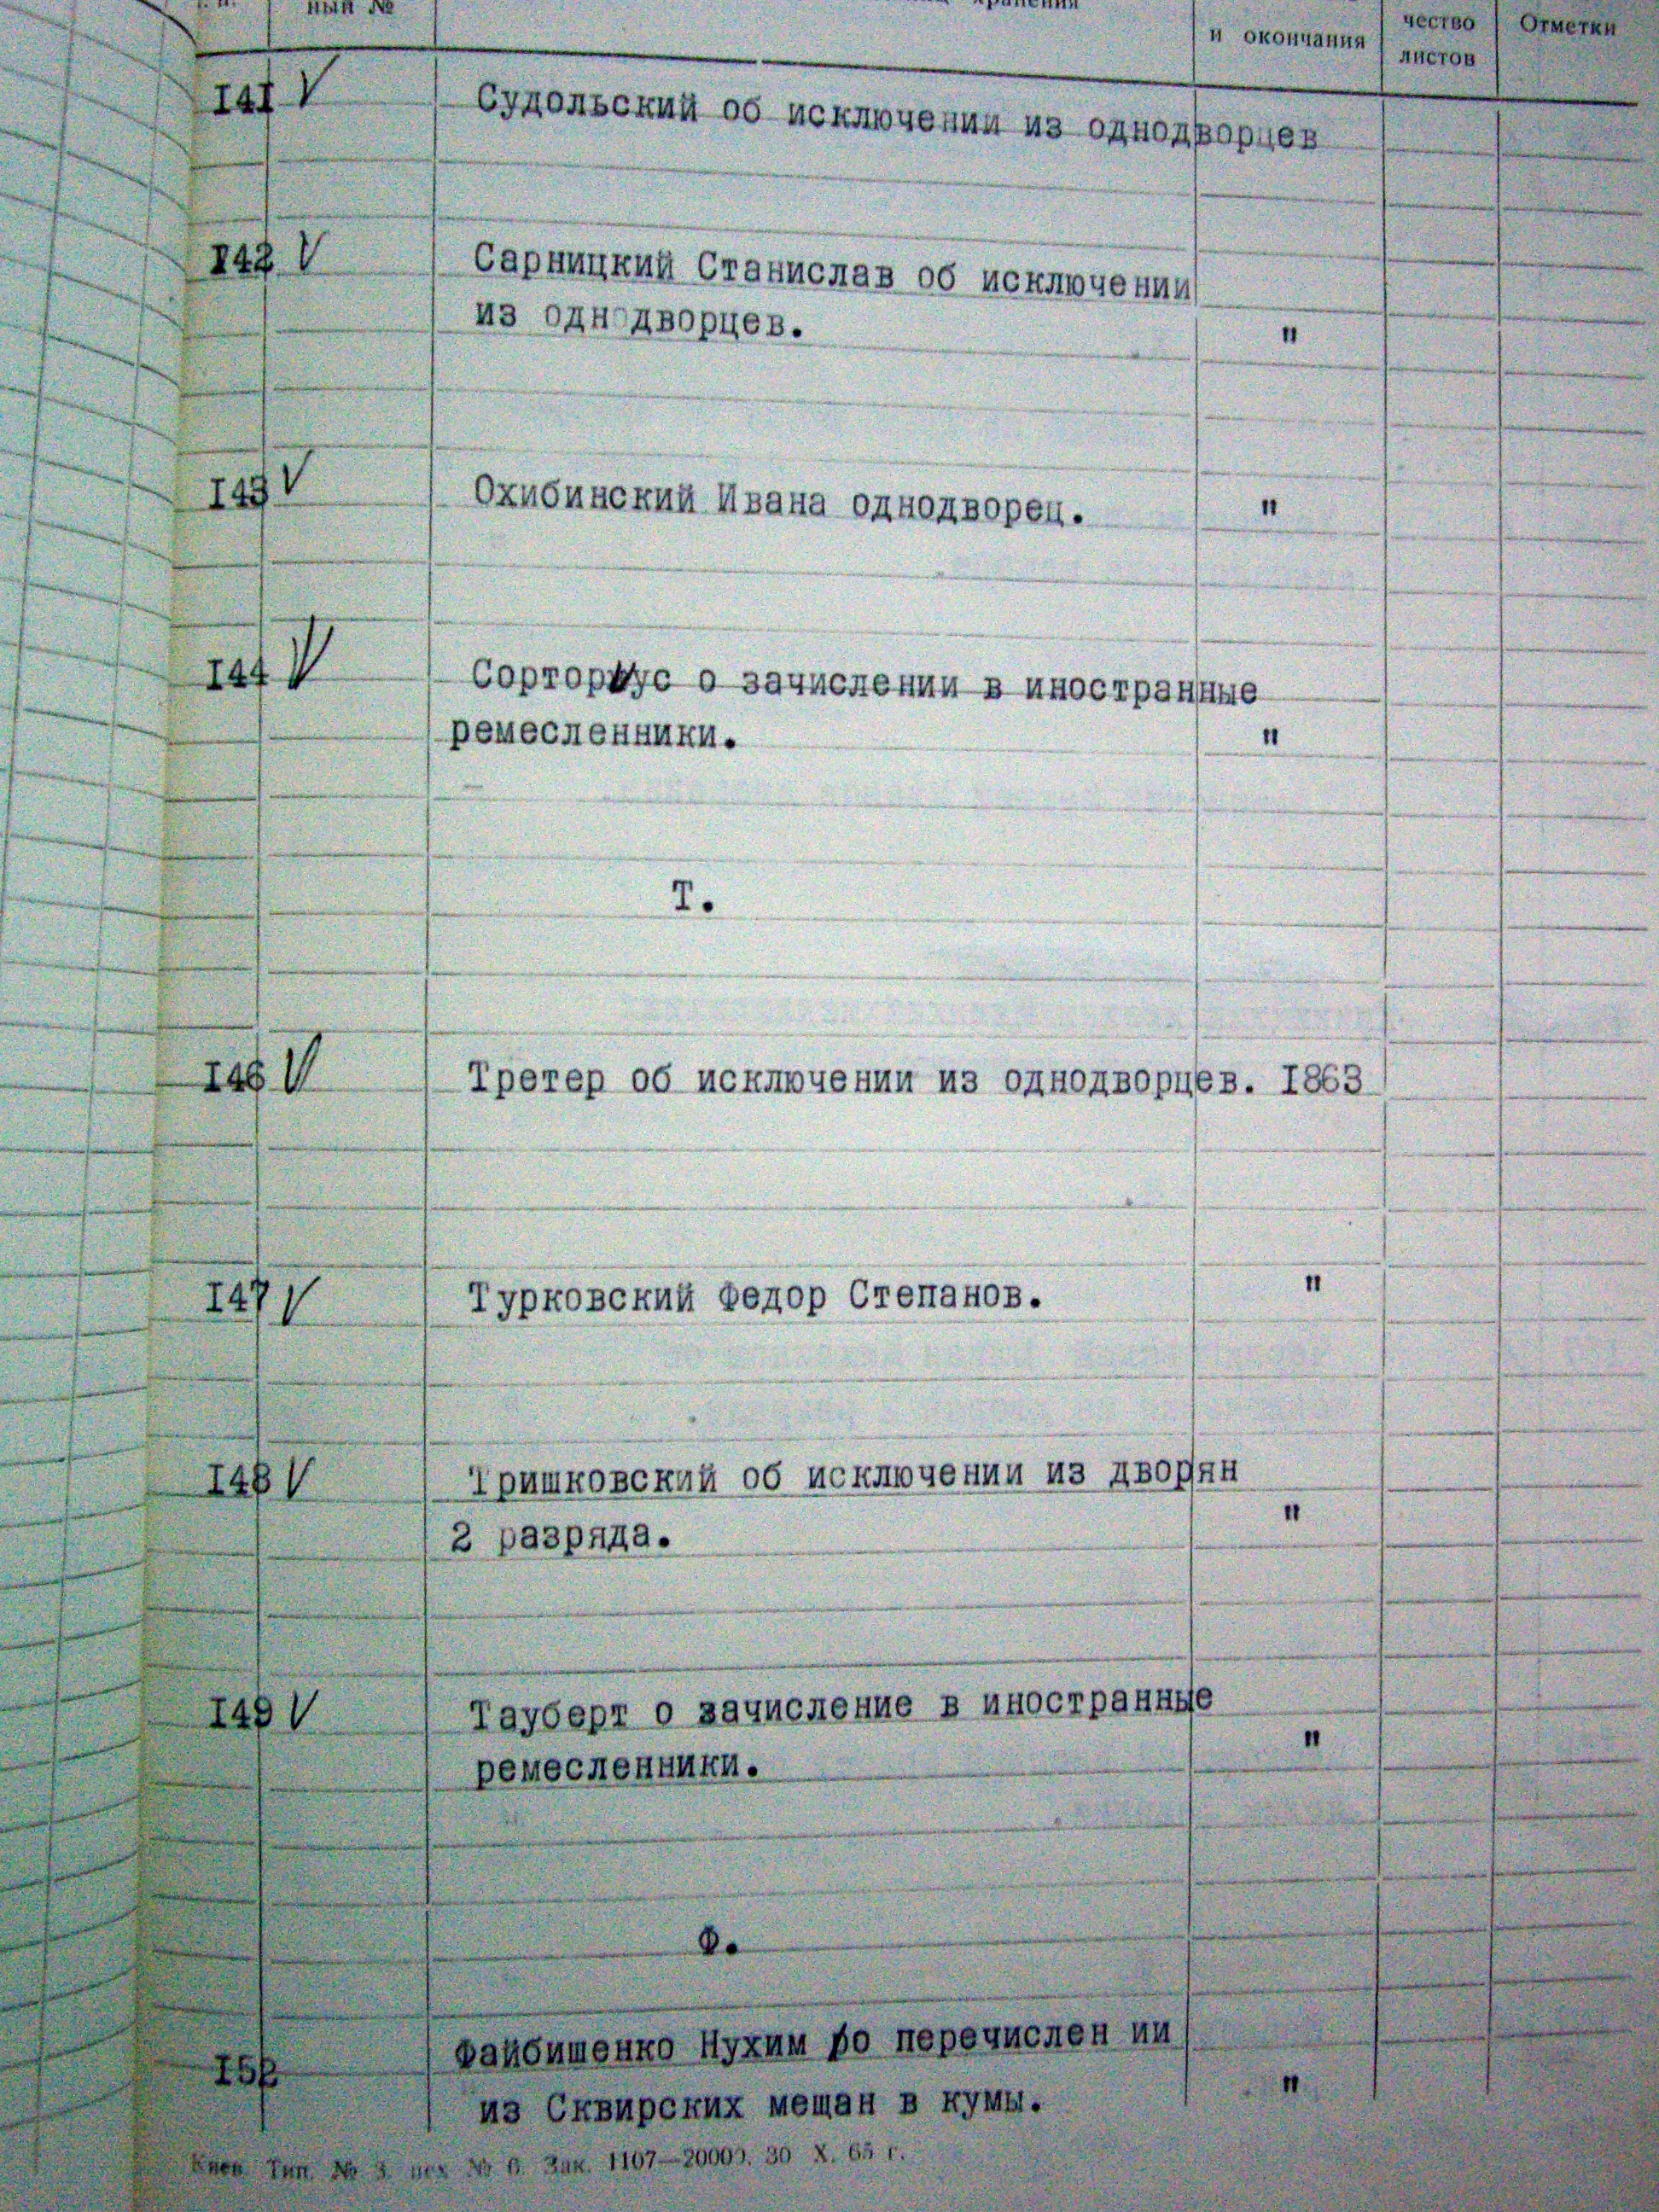 ный №
хранения
чество
Отметки
и окончания
листов
I4I V
Судольский об исключении из однодворцев
I42 V
Сарницкий Станислав об исключении
из однодворцев.
"
I43 V
Охибинский Ивана однодворец.
"
I44 V
о зачислении в иностранные
ремесленники.
"
Т.
I46 V
Трегер об исключении из однодворцев. I863
I47 V
Турковский Федор Степанов.
"
I48 V
Тришковский об исключении из дворян
2 разряда.
"
I49 V
Тауберт о зачисление в иностранные
ремесленники.
"
Ф.
Файбишенко Нухим о перечислен ии
из Сквирских мещан в кумы.
"
Зак. 1107—20000. 30 X. 65 г.